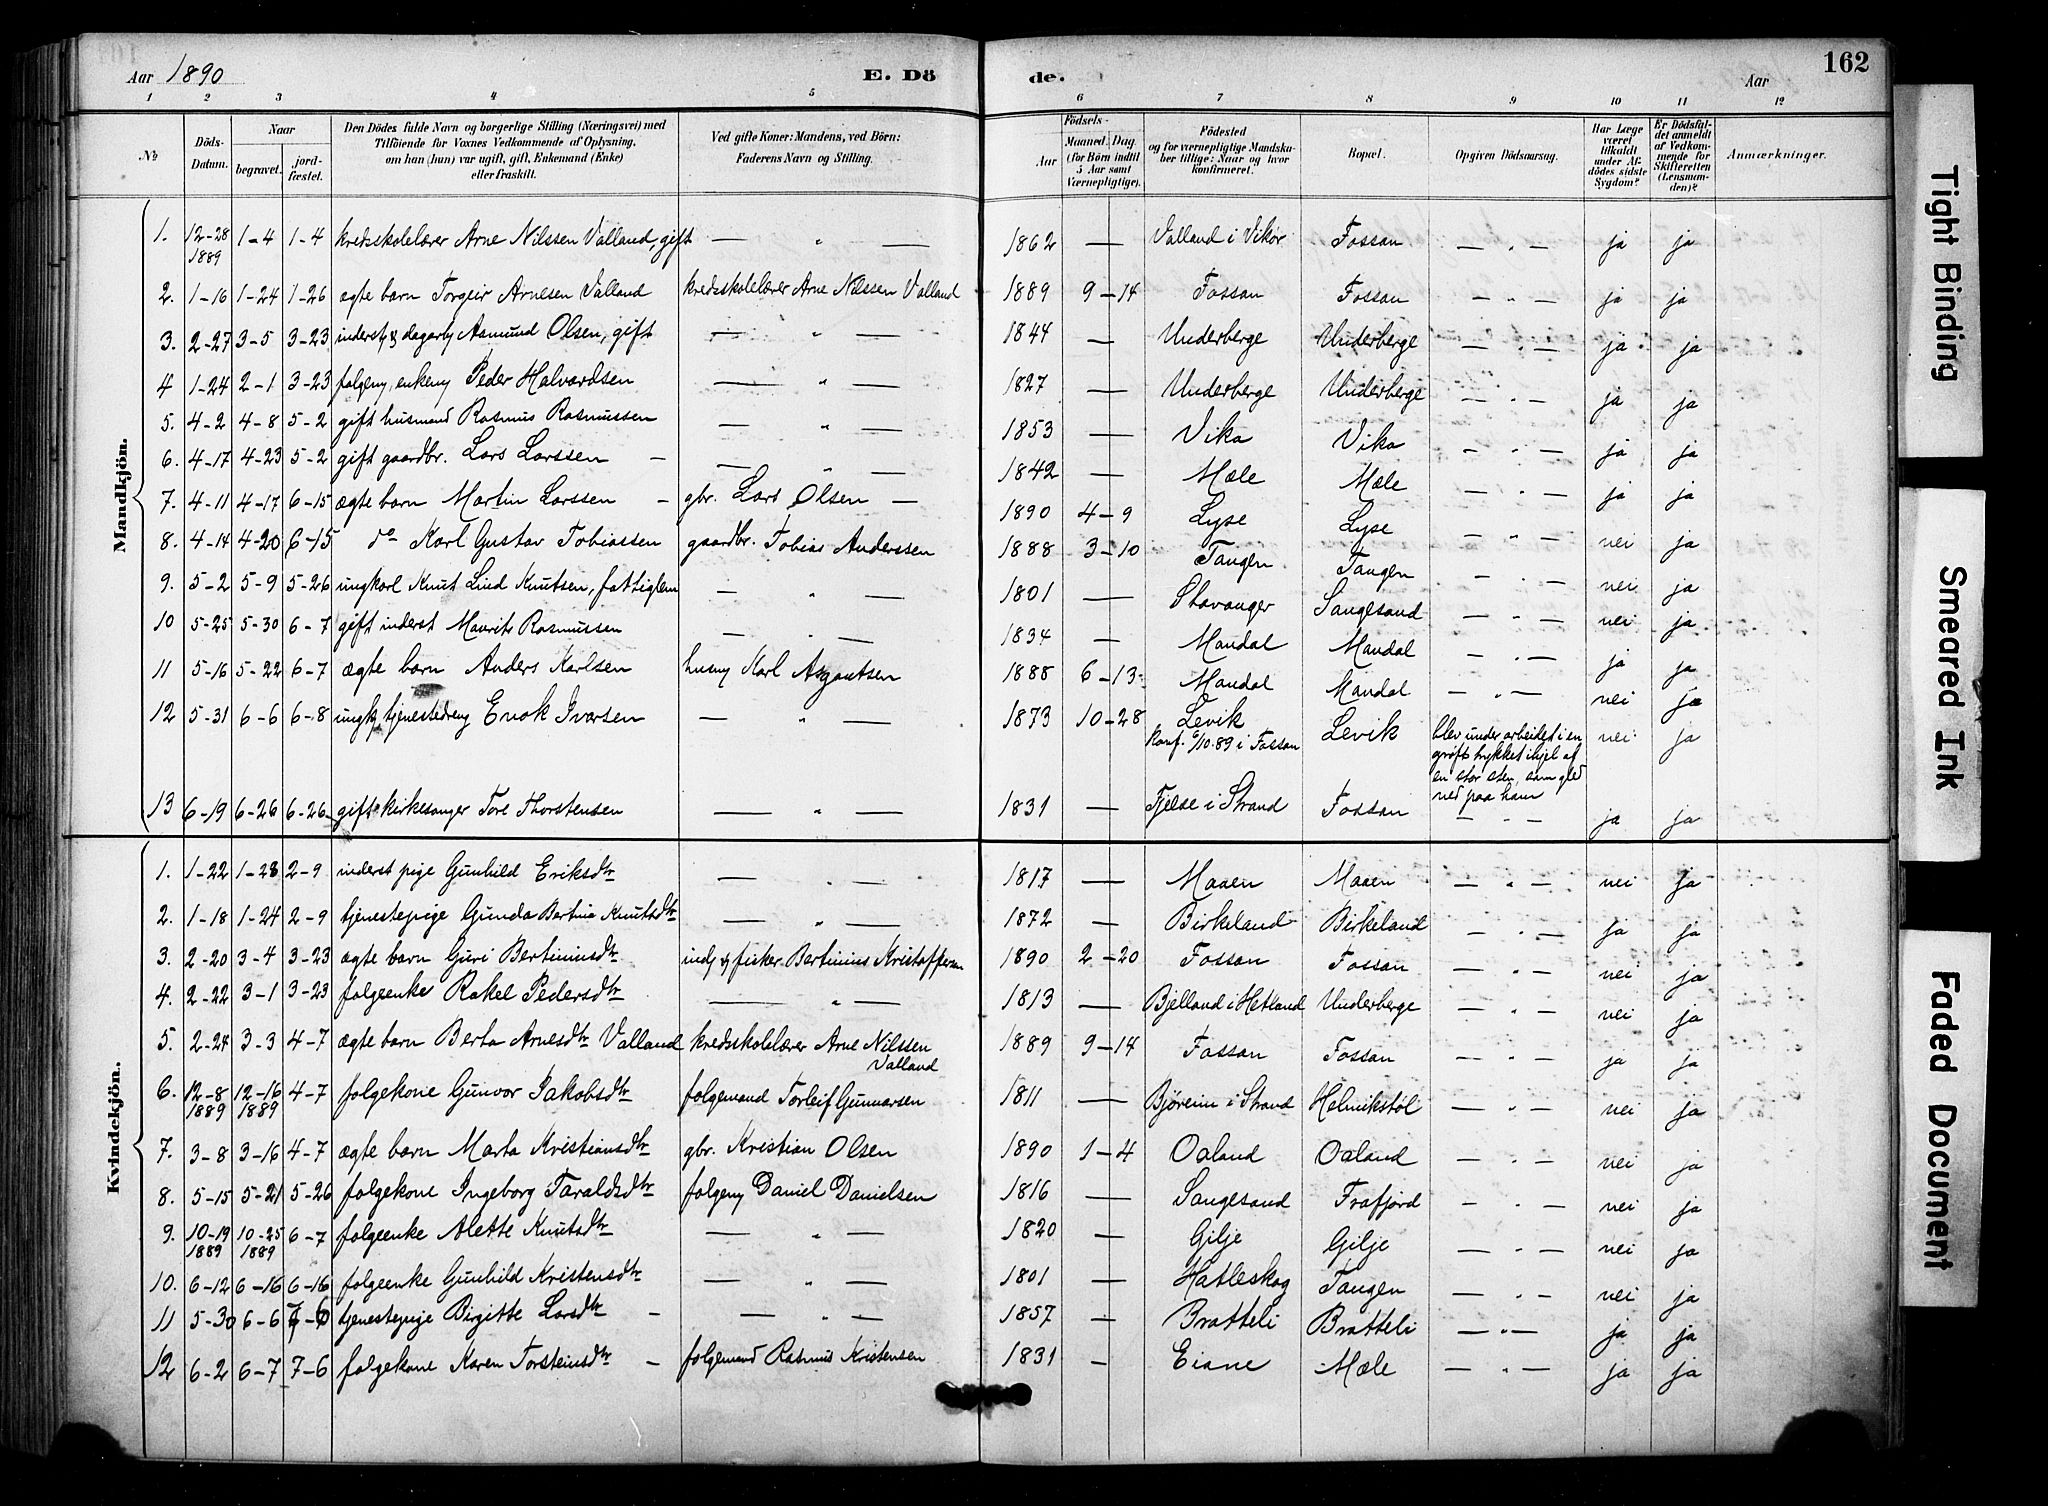 Aar 1890 E. Dö de. Aar 162
1 2 3 4 5 6 7 8 9 10 11 12
No
Döds-Datum.
Naar
begravet.
jord-fæstet.
Den Dödes fulde Navn og borgerlige Stilling (Næringsvei) med
Tilföiende for Voxnes Vedkommende af Oplysning,
om han (hun) var ugift, gift, Enkemand (Enke)
eller fraskilt.
Ved gifte Koner: Mandens, ved Börn:
Faderens Navn og Stilling.
Födsels-
Aar
Maaned. Dag.
(for Börn indtil
5 Aar samt
Værnepligtige).
Födested
og for værnepligtige Mandsku-
ber tillige: Naar og hvor
konfirmeret.
Bopæl.
Opgiven Dödsaarsag.
Har Læge
været
tilkaldt
under Af-
dödes sidste
Sygdom?
Er Dödsfal-
det anmeldt
af Vedkom-
mende for
Skifteretten
(Lensman-
den)?
Anmærkninger.
Mandkjön.
1. 12-28 1889 1-4 1-4 kredsskolelærer Arne Nilssen Valland, gift — " — 1862 — Valland i Vikør Fossan — " — ja ja
2. 1-16 1-24 1-26 ægte barn Torgeir Arnesen Valland kredsskolelærer Arne Nilssen Valland 1889 9-14 Fossan Fossan — " — ja ja
3. 2-27 3-5 3-23 inderst og dagarb. Asmund Olsen, gift — " — 1844 — Underberge Underberge — " — ja ja
4 1-24 2-1 3-23 folgem, enkem Peder Halvardsen — " — 1827 — Underberge Underberge — " — ja ja
5. 4-2 4-8 5-2 gift husmand Rasmus Rasmussen — " — 1853 — Vika Vika — " — ja ja
6. 4-17 4-23 5-2 gift gaardbr. Lars Larssen — — " — 1842 — Mæle Mæle — " — ja ja
7. 4-11 4-17 6-15 ægte barn Martin Larssen — gbr. Lars Olsen — 1890 4-9 Lyse Lyse — " — nei ja
8. 4-14 4-20 6-15 do Karl Gustav Tobiassen gaardbr. Tobias Anderssen 1888 3-10 Tangen Tangen — " — nei ja
9. 5-2 5-9 5-26 ungkarl Knut Lind Knutsen, fattiglem — " — 1801 — Stavanger Sangesand — " — nei ja
10 5-25 5-30 6-7 gift inderst Mauritz Rasmussen — " — 1834 — Mandal Mandal — " — ja ja
11 5-16 5-22 6-7 ægte barn Anders Karlsen husm Karl Asgautsen 1888 6-13 Mandal Mandal — " — nei ja
12 5-31 6-6 6-8 ungk, tjenestedreng Enok Ivarsen — " — 1873 10-28 Levik Levik blev under arbeidet i en nei ja
konf. 6/10-89 i Fossan grøft trykket ihjel af
en stor sten, som gled
ned paa ham
13 6-19 6-26 6-26 gift kirkesanger Tore Thorstensen — " — 1831 — Fjelse i Strand Fossan — " — ja ja
Kvindekjön.
1. 1-22 1-28 2-9 inderst pige Gunhild Eriksdtr — " — 1817 — Maaen Maaen — " — nei ja
2. 1-18 1-24 2-9 tjenestepige Gunda Bertina Knutsdtr — " — 1872 — Birkeland Birkeland — " — ja ja
3. 2-20 3-4 3-23 ægte barn Guri Bertiniusdtr ind. og fisker Bertinius Kristoffersen 1890 2-20 Fossan Fossan — " — nei ja
4. 2-22 3-1 3-23 folgeenke Rakel Pedersdtr — " — 1813 — Bjelland i Hetland Underberge — " — nei ja
5. 2-24 3-3 4-7 ægte barn Berta Arnesdtr Valland kredsskolelærer Arne Nilssen 1889 9-14 Fossan Fossan — " — ja ja
Valland
6. 12-8 1889 12-16 1889 4-7 folgekone Gunvor Jakobsdtr folgemand Torleif Gunnarsen 1811 — Bjøreim i Strand Helmikstøl — " — nei ja
7. 3-8 3-16 4-7 ægte barn Marta Kristiansdtr gbr. Kristian Olsen 1890 1-4 Oaland Oaland — " — nei ja
8. 5-15 5-21 5-26 folgekone Ingeborg Taraldsdtr folgem Daniel Danielsen 1816 — Sangesand Frafjord — " — nei ja
9. 10-19 1889 10-25 1889 6-7 folgeenke Alette Knutsdtr — " — 1820 — Gilje Gilje — " — nei ja
10. 6-12 6-16 6-16 folgeenke Gunhild Kristensdtr — " — 1801 — Hatleskog Tangen — " — nei ja
11 5-30 6-6 7-6 tjenestepige Birgitte Larsdtr — — " — 1857 — Bratteli Bratteli — " — ja ja
12 6-2 6-7 7-6 folgekone Karen Torsteinsdtr — folgemand Rasmus Kristensen 1831 — Eiane Mæle — " — ja ja
Tight Binding
Smeared Ink
Faded Document